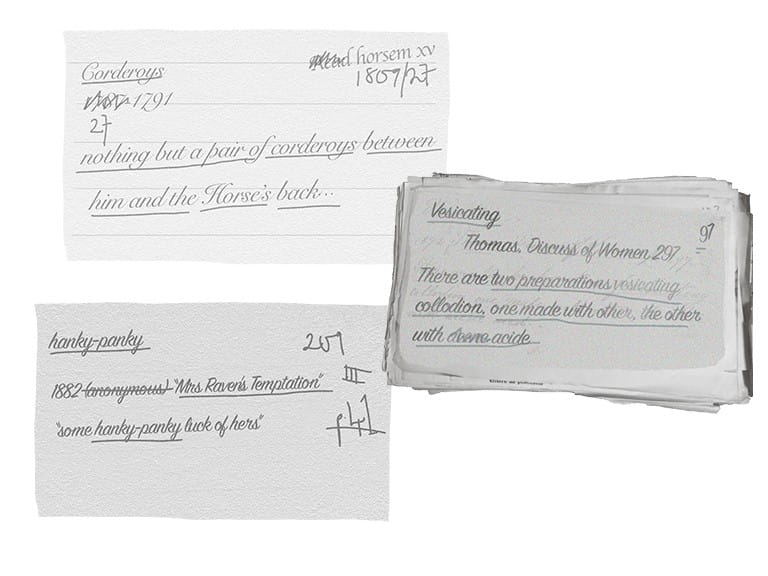 Corderoys
horsem xv
1809/27
1791
27
nothing but a pair of corderoys between
him and the Horse's back...
Vesicating
97
Thomas, Discuss of Women 297
There are two preparations vesicating
collodion, one made with other, the other
with acide
hanky-panky
207
1882 (anonymous) "Mrs Raven's Temptation"
III
"some hanky-panky luck of hers"
f41